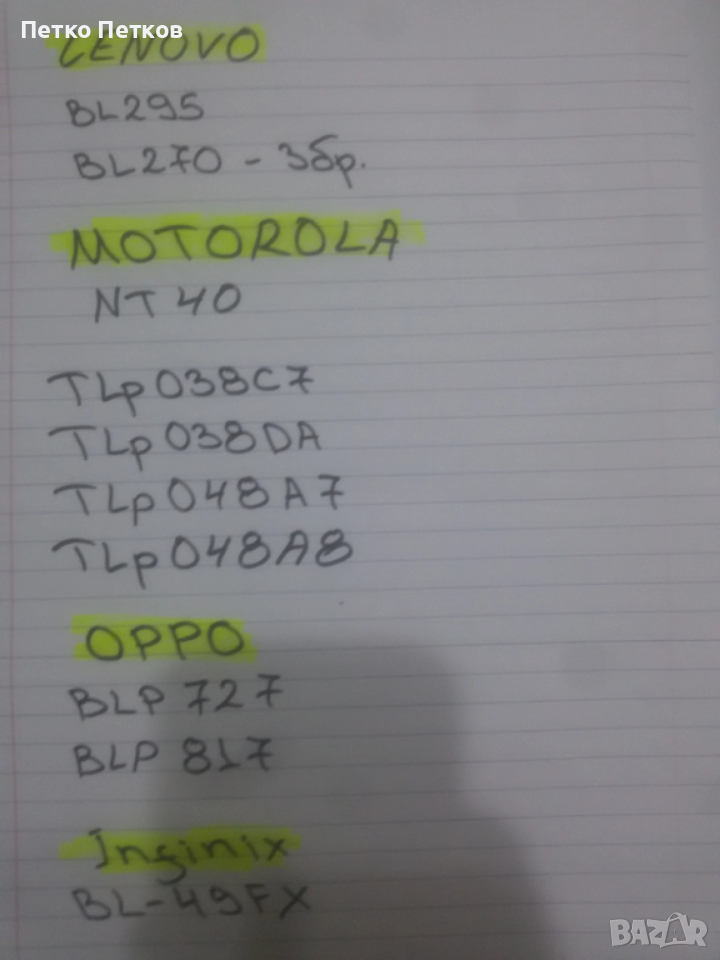 Петко Петков
LENOVO
BL295
BL270 - 3бр.
MOTOROLA
NT 40
TLp038C7
TLp038DA
TLp048A7
TLp048A8
OPPO
BLP 727
BLP 817
Inginix
BL-49FX
BAZAR